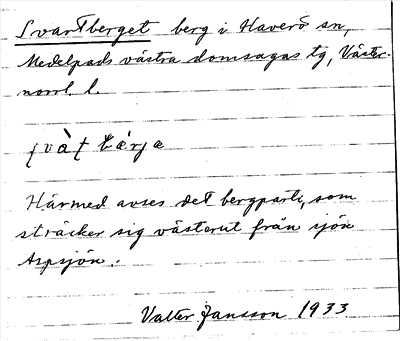 Svartberget berg i Haverö sn,
Medelpads västra domsagas tg, Väster-
norrl. l.
Härmed avses det bergparti, som
sträcker sig västerut från sjön
Aspsjön.
Valter Jansson 1933